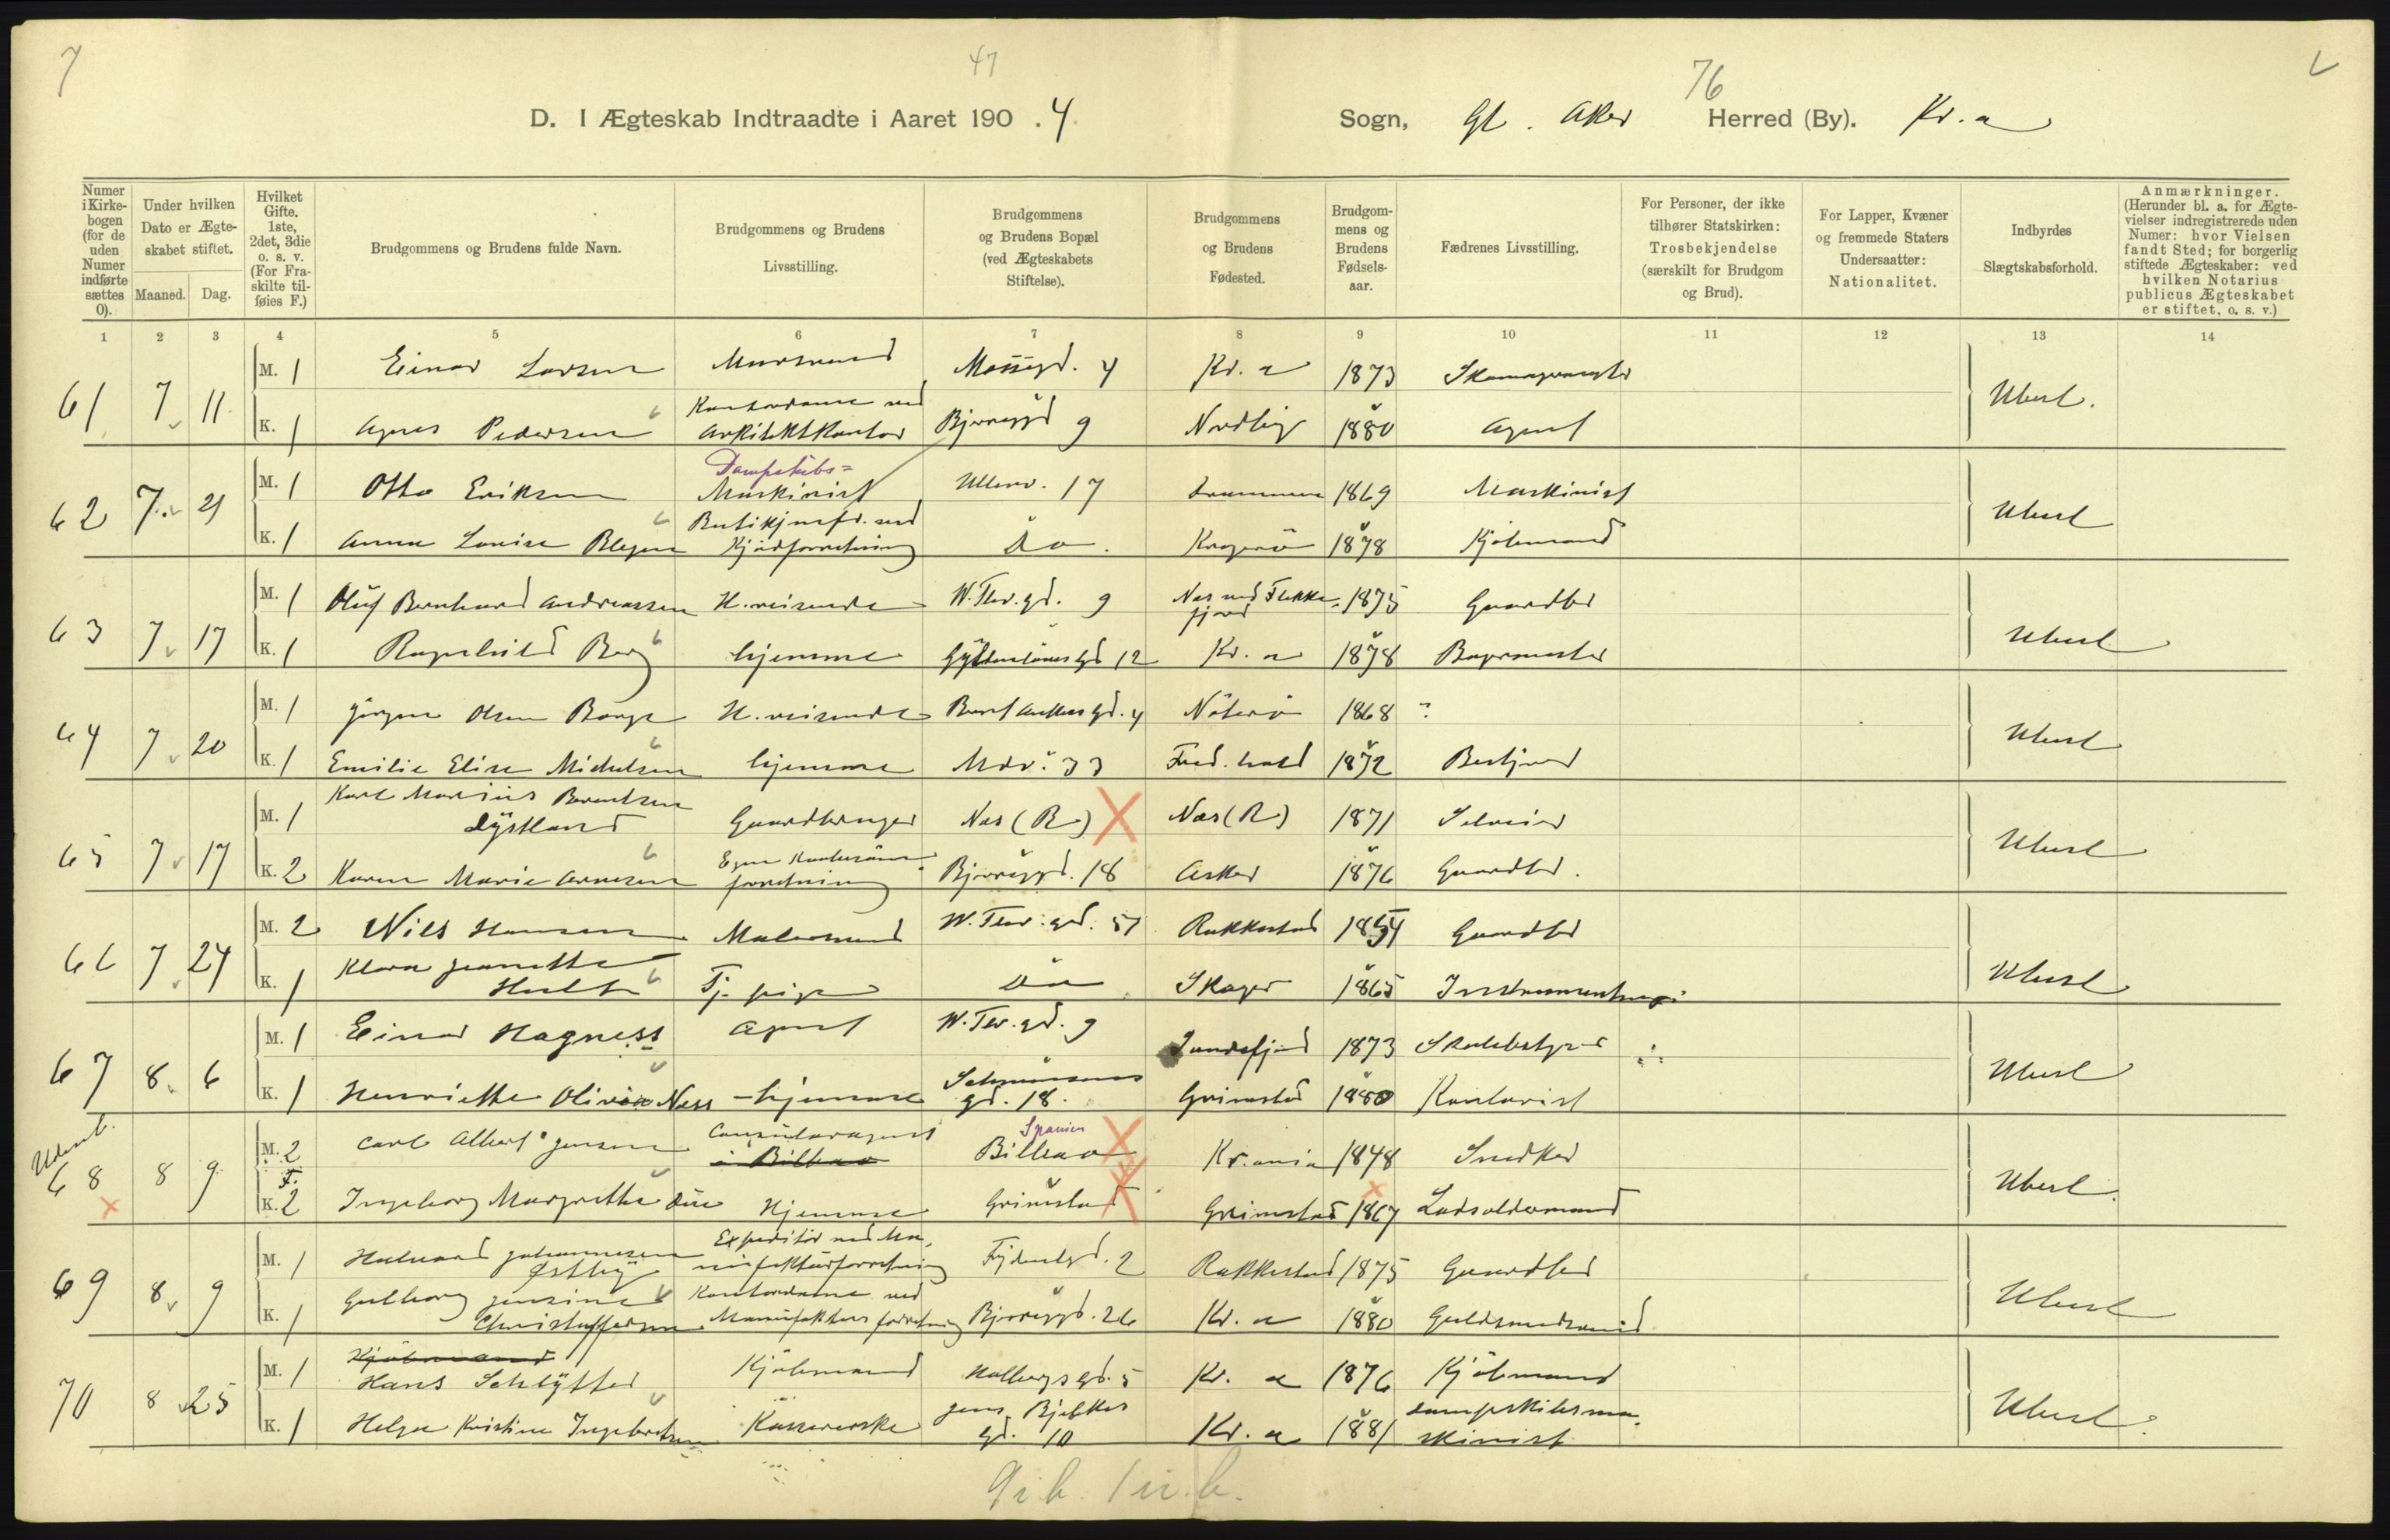 7
47
76
D. I Ægteskab Indtraadte i Aaret 190 . 4
Sogn, Gl. Aker Herred (By). Kr.a
Numer i Kirke-bogen (for de uden Numer indførte sættes 0).
Under hvilken Dato er Ægte-skabet stiftet.
Maaned. Dag.
Hvilket Gifte. 1ste, 2det, 3die o. s. v. (For Fra-skilte til-føies F.)
Brudgommens og Brudens fulde Navn.
Brudgommens og Brudens Livsstilling.
Brudgommens og Brudens Bopæl (ved Ægteskabets Stiftelse).
Brudgommens og Brudens Fødested.
Brudgom-mens og Brudens Fødsels-aar.
Fædrenes Livsstilling.
For Personer, der ikke tilhører Statskirken: Trosbekjendelse (særskilt for Brudgom og Brud).
For Lapper, Kvæner og fremmede Staters Undersaatter: Nationalitet.
Indbyrdes Slægtskabsforhold.
Anmærkninger. (Herunder bl. a. for Ægte-vielser indregistrerede uden Numer: hvor Vielsen fandt Sted; for borgerlig stiftede Ægteskaber: ved hvilken Notarius publicus Ægteskabet er stiftet, o. s. v.)
1 2 3 4 5 6 7 8 9 10 11 12 13 14
61 7 11 M. 1 Einar Larsen Murmand Mossegd. 4 Kr. a 1873 Ubesl.
K. 1 Agnes Pedersen Kontordame ved Arkitektkontor Bjerregd 9 1880 Agent
62 7 21 M. 1 Otto Eriksen Dampskibs= Maskinist Ullev. 17 Drammen 1869 Maskinist Ubesl
K. 1 Anna Lovise Blegen Butikjomfr. ved Kjødforretning Do. Kragerø 1878 Kjøbmand
63 7 17 M. 1 Oluf Bernhard Andreassen H. reisende W. Thr. gd. 9 Nes ved Flekke-fjord 1875 Gaardbr Ubesl
K. 1 Ragnhild Berg hjemme Gyldenløvesgd 12 Kr. a 1878 Bagermester
64 7 20 M. 1 Jørgen Olsen Borge H. reisende Bernt Ankers gd. 4 Nøterø 1868 ? Ubesl
K. 1 Emilie Elise Michelsen hjemme Mdv. 33 Fred.hald 1872
65 7 17 M. 1 Karl Marius Berentsen Dystland Gaardbruger Nes (R) Næs (R) 1871 Ubesl
K. 2 Karen Marie Arnesen forretning Bjerregd. 18 Asker 1876 Gaardbr.
66 7 24 M. 2 Nils Hansen Malermand W. Thr. gd. 51 Rakkestad Gaardbr Ubesl
K. 1 Klara Jeanette Tj. pige Do Skager 1865
67 8 6 M. 1 Einar Hagness Agent W. Thr. gd. 9 Sandefjord 1873 Skolebstyrer Ubesl
K. 1 Henriette Olivia Ness hjemme gd. 18. Grimstad 1880 Kontorist
Udenb.
68 8 9 M. 2 F. Carl Albert Jensen Consularagent i Bilbao Bilbao Spanien Kr.ania 1848 Snedker Ubesl.
K. 2 Ingeborg Margrethe Due Hjemme Grimstad Grimstad 1867 Lodsoldermand
69 8 9 M. 1 Halvard Johannesen Østby Expeditør ved Ma-nufakturforretning 2 Rakkestad 1875 Gaardbr Ubesl
K. 1 Gulborg Jensine Christoffersen Kontordame ved Manufakturforretning Bjerregd. 26 Kr. a 1880 Guldsmedsvend
70 8 25 M. 1 Kjøbmand Hans Schlytter Kjøbmand Holbergs gd. 5 Kr. a 1876 Kjøbmand Ubesl.
K. 1 Helga Kristine Ingebretsen Kassererske Jens Bjelkes gd. 10 Kr. a 1881 Dampskibsma-skinist
9 i b. 1 u. b.